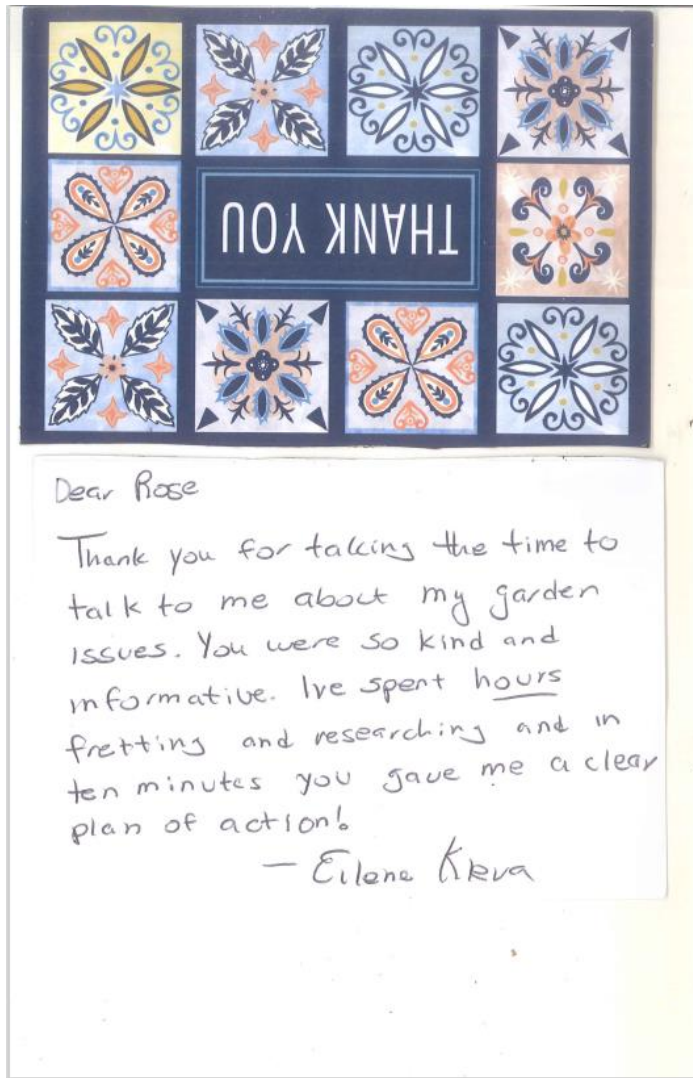 THANK YOU
Dear Rose
Thank you for taking the time to
talk to me about my garden
issues. You were so kind and
informative. Ive spent hours
fretting and researching and in
ten minutes you gave me a clear
plan of action!
— Eilene